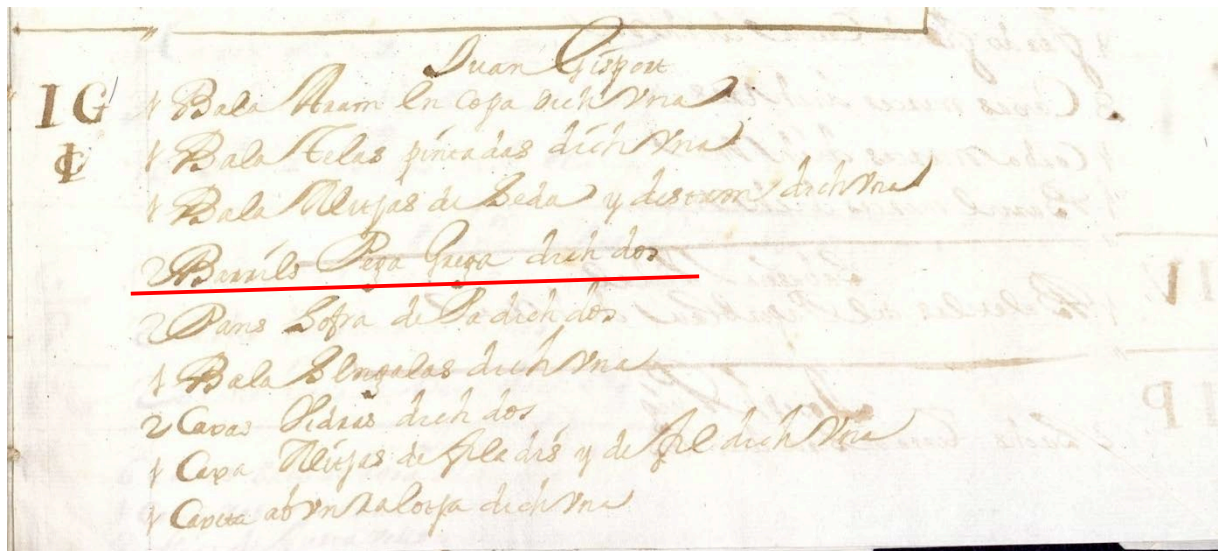 Juan Gispert
IG 1 Bala Aram en Copa dich Vna
1 Bala Telas pintadas dich Vna
1 Bala Mitjas de Seda y de dich Vna
2 Barrils Pega Grega dich dos
2 Pans Sofra de Pa dich dos
1 Bala Bengalas dich Vna
2 Caxas Vidras dich dos
1 Caxa Mitjas de filadis y de fil dich Vna
1 Caxeta ab vn Ralotja dich Vna